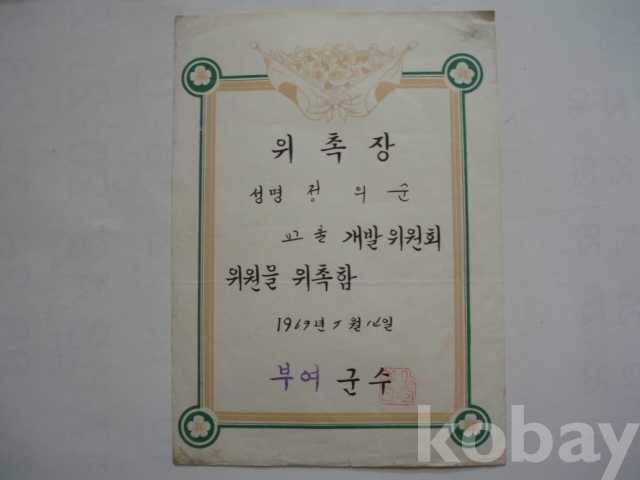 위촉장
성명 정 의 순
개발위원회
위원을 위촉함
196 년 월 일
부여 군수
kobay